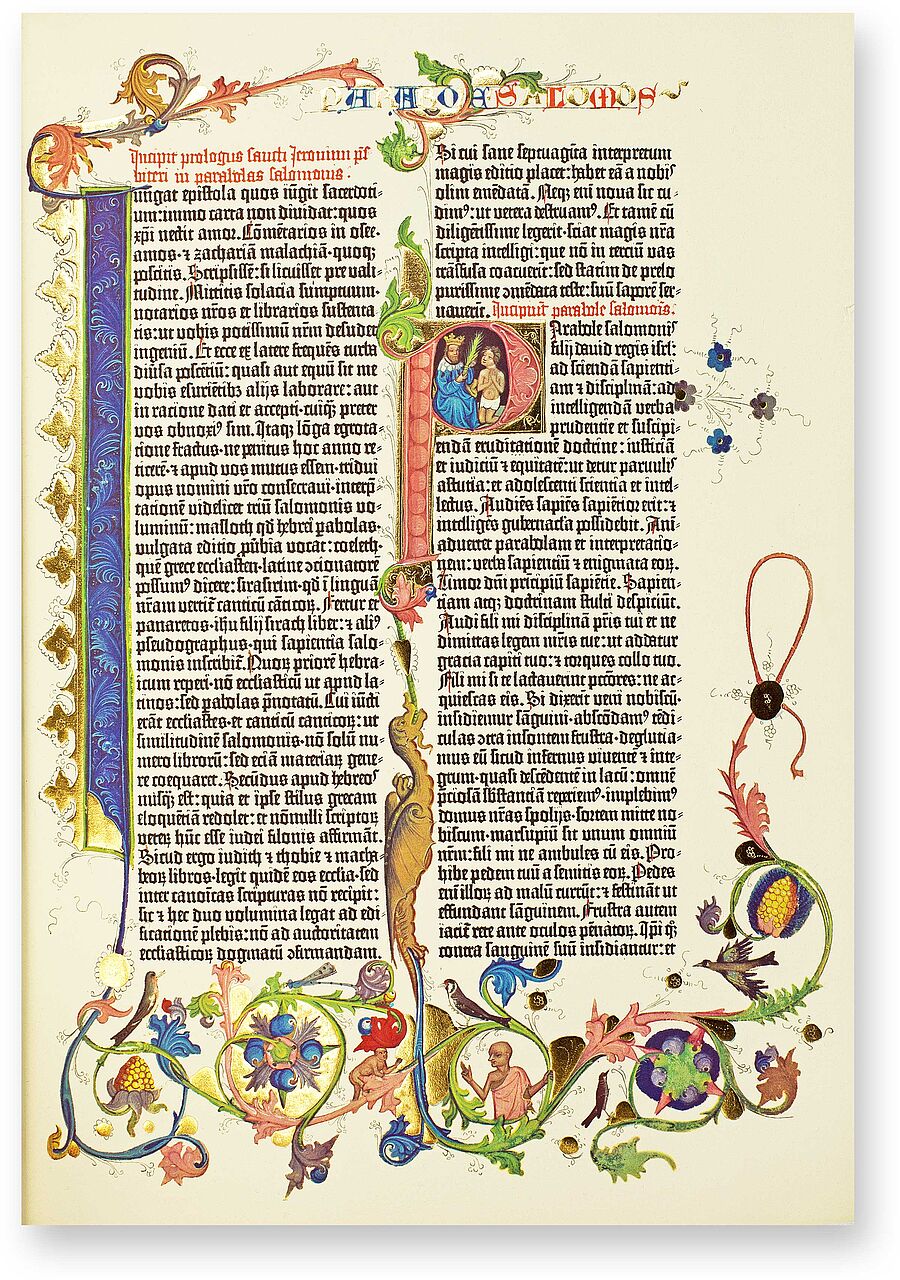 PARABOLE SALOMOIS
Incipit prologus sancti Ieronimi pſ⸗
biteri in parabolas salomonis.
Iungat epistola quos iūgit sacerdoti⸗
um:immo carta non diuidat:quos
xp̄i nectit amor. Cōmētarios in osee·
amos·⁊ zachariā malachiā·quoqꝫ
poscitis. Scripsissē:si licuisset pre vali⸗
tudine. Mittitis solacia sumptuum·
notarios nr̄os et librarios sustenta⸗
tis:ut vobis potissimū nr̄m desudet
ingeniū. Et ecce ex latere frequēs turba
diūsa poscētiū:quasi aut equū sit me
vobis esuriētibꝫ alijs laborare:aut
in ratione dati et accepti·cuiqꝫ preter
vos obnoxiꝰ sim. Itaqꝫ lōga egrota⸗
tione fractus·ne penitus hoc anno re⸗
ticerē·⁊ apud vos mutus essem·tridui
opus nomini vr̄o consecraui·interp̄⸗
tationē videlicet triū salomonis vo⸗
luminū:masloth qd̄ hebrei pabolas·
vulgata editio pūbia vocat:coeleth·
quē grece ecclesiasten·latine ↄcionatorē
possumꝰ dicere:sirasirim·qd̄ ī linguā
nr̄am vertit̄ canticū cāticoꝝ. Fertur et
panaretos·ihū filij sirach liber:⁊ aliꝰ
pseudographus·qui sapientia salo⸗
monis inscribit̄. Quoꝝ priorē hebra⸗
icum reperi·nō ecclesiasticū ut apud la⸗
tinos:sed pabolas p̄notatū. Cui iūcti
erāt ecclesiastes·et canticū canticoꝝ:ut
similitudinē salomonis·nō solū nu⸗
mero librorū:sed etiā materiaꝝ gene⸗
re coequaret. Secūdus apud hebreos
nusqꝫ est:quia et ipse stilus grecam
eloquētiā redolet:et nōnulli scriptoꝝ
veteꝝ hūc esse iudei filonis affirmāt.
Sicud ergo iudith ⁊ thobie ⁊ macha⸗
beoꝝ libros·legit quidē eos ecclesia·sed
inter canoīcas scripturas nō recipit:
sic ⁊ hec duo volumina legat ad edi⸗
ficationē plebis:nō ad auctoritatem
ecclesiasticoꝝ dogmatū ↄfirmandam.
Si cui sane septuagīta interpretum
magis editio placet:habet eā a nobis
olim emēdatā. Neqꝫ eni noua sic cu⸗
dimꝰ:ut vetera destruamꝰ. Et tamē cū
diligētissime legerit·sciat magis nr̄a
scripta intelligi:que nō in terciū vas
trāsfusa coacuerit:sed statim de prelo
purissime ↄmēdata teste:suū saporē ser⸗
uauerīt. Incipiunt parabole salomois.
Parabole salomonis
filij dauid regis isrl̄:
ad sciendā sapienti⸗
am ⁊ disciplinā:ad
intelligendā verba
prudentie et suscipi⸗
endā eruditationē doctrine:iusticiā
et iudiciū ⁊ equitatē:ut detur paruulis
astutia:et adolescenti scientia et intel⸗
lectus. Audiēs sapiēs sapiētior erit:⁊
intelligēs gubernacla possidebit. Ani⸗
aduertet parabolam et interpretatio⸗
nem:verba sapientiū ⁊ enigmata eoꝝ.
Timor dn̄i principiū sapiētie. Sapien⸗
tiam atqꝫ doctrinam stulti despiciūt.
Audi fili mi disciplinā pr̄is tui et ne
dimittas legem mr̄is tue:ut addatur
gracia capiti tuo:⁊ torques collo tuo.
Fili mi si te lactauerint pctōres:ne ac⸗
quiescas eis. Si dixerit veni nobiscū·
insidiemur sāguini·abscōdamꝰ tēdi⸗
culas ↄtra insontem frustra·deglutia⸗
mus eū sicud infernus viuentē ⁊ īte⸗
grum·quasi descēdentē in lacū:omnē
p̄ciosā s̄bstantiā repiemꝰ·implebimꝰ
domus nr̄as spolijs·sortem mitte no⸗
biscum·marsupiū sit unum omniū
nr̄m:fili mi ne ambules cū eis. Pro⸗
hibe pedem tuū a semitis eoꝝ. Pedes
eni illoꝝ ad malū currūt:⁊ festināt ut
effundant sāguinem. Frustra autem
iacit̄ rete ante oculos pēnatoꝝ. Ipi qꝫ
contra sanguinē suū insidiantur:et